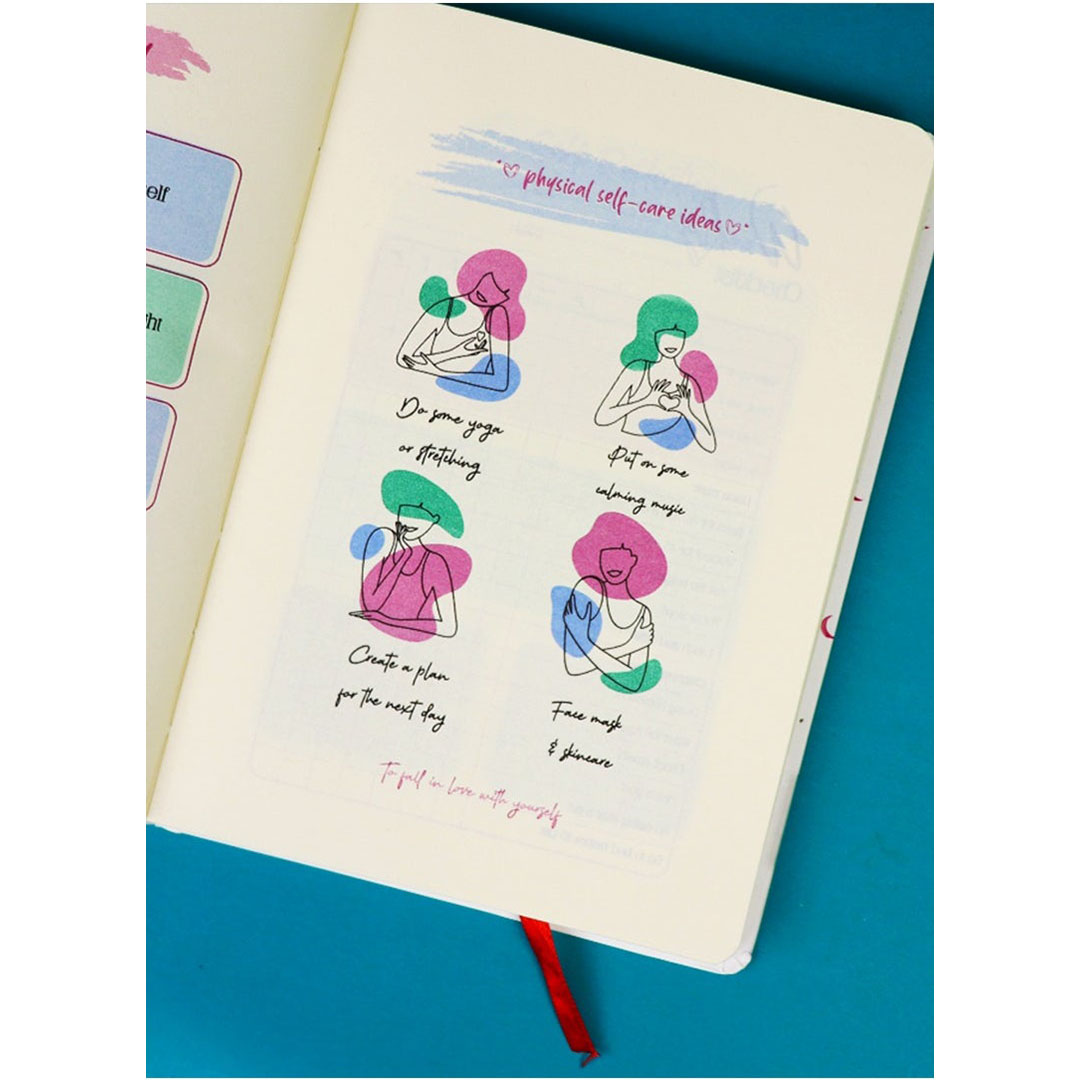 elf
ht
physical self-care ideas
Do some yoga
or stretching
Put on some
calming music
Create a plan
for the next day
Face mask
& skincare
To fall in love with yourself